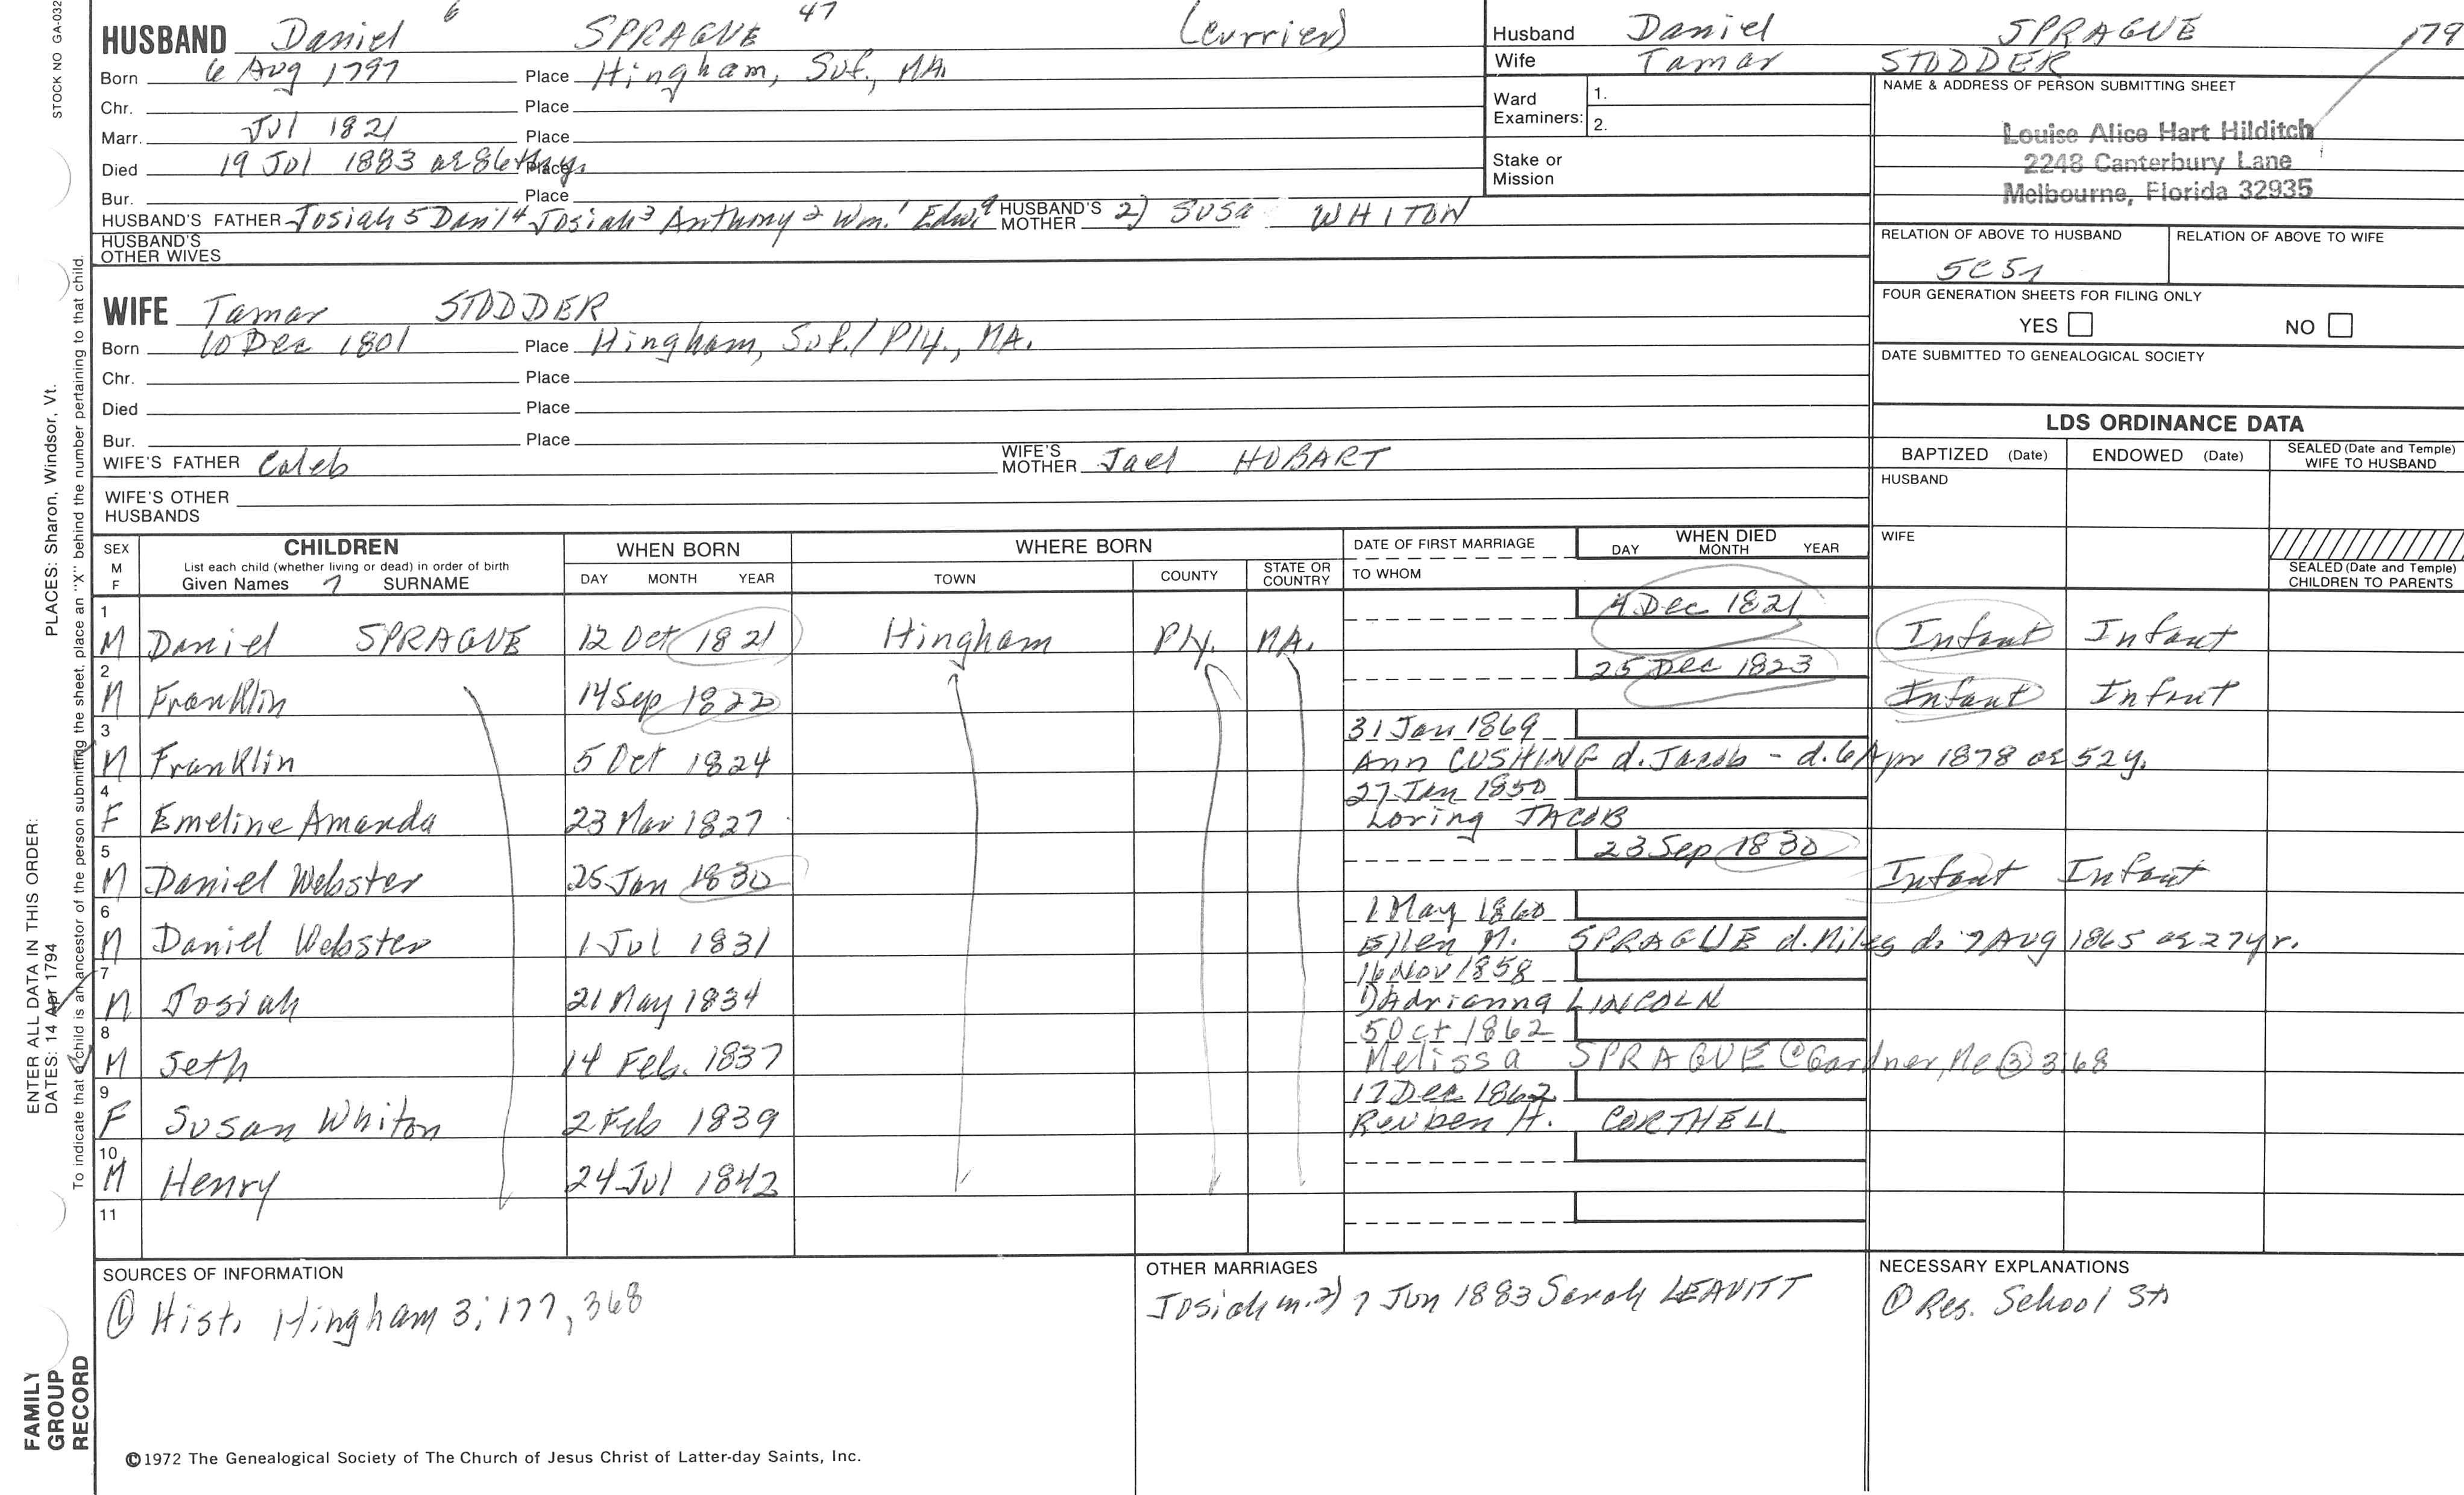 STOCK NO GA-032
HUSBAND Daniel 6 SPRAGUE 47 (Currier)
Born 6 Aug 1797 Place Hingham, Suf., MA.
Chr. Place
Marr. Jul 1821 Place
Died 19 Jul 1883 ae 86 Place
Bur. Place
HUSBAND'S FATHER Josiah 5 Danl 4 Josiah 3 Anthony 2 Wm. 1 Edw. HUSBAND'S MOTHER 2) Susa WHITON
HUSBAND'S OTHER WIVES
WIFE Tamar STODDER
Born 10 Dec 1801 Place Hingham, Suf./Ply., MA.
Chr. Place
Died Place
Bur. Place
WIFE'S FATHER Caleb WIFE'S MOTHER Jael HOBART
WIFE'S OTHER HUSBANDS
Husband Daniel SPRAGUE 179
Wife Tamar STODDER
Ward Examiners: 1.
2.
Stake or Mission
NAME & ADDRESS OF PERSON SUBMITTING SHEET
Louise Alice Hart Hilditch
2248 Canterbury Lane
Melbourne, Florida 32935
RELATION OF ABOVE TO HUSBAND RELATION OF ABOVE TO WIFE
FOUR GENERATION SHEETS FOR FILING ONLY
YES NO
DATE SUBMITTED TO GENEALOGICAL SOCIETY
LDS ORDINANCE DATA
BAPTIZED (Date) ENDOWED (Date) SEALED (Date and Temple) WIFE TO HUSBAND
HUSBAND
WIFE
SEALED (Date and Temple) CHILDREN TO PARENTS
SEX M F CHILDREN WHEN BORN WHERE BORN DATE OF FIRST MARRIAGE WHEN DIED
List each child (whether living or dead) in order of birth DAY MONTH YEAR
Given Names 7 SURNAME DAY MONTH YEAR TOWN COUNTY STATE OR COUNTRY TO WHOM
1 4 Dec 1821
M Daniel SPRAGUE 12 Oct 1821 Hingham Ply. MA. Infant Infant
2 25 Dec 1823
M Franklin 14 Sep 1822 Infant Infnt
3 31 Jan 1869
M Franklin 5 Oct 1824 Ann CUSHING d. Jacob - d. 6 Apr 1878 ae 52 y.
4 27 Jan 1850
F Emeline Amanda 23 Mar 1827 Loring JACOB
5 23 Sep 1830
M Daniel Webster 25 Jan 1830 Infant Infant
6 1 May 1860
M Daniel Webster 1 Jul 1831 Ellen M. SPRAGUE d. Miles d. 7 Aug 1865 ae 27 yr.
7 16 Nov 1858
M Josiah 21 May 1834 1) Adrianna LINCOLN
8 5 Oct 1862
M Seth 14 Feb. 1837 Melissa SPRAGUE @ Gardner, Me ③ 3:68
9 17 Dec 1862
F Susan Whiton 2 Feb 1839 Reuben H. CORTHELL
10
M Henry 24 Jul 1842
11
SOURCES OF INFORMATION
① Hist. Hingham 3; 177, 368
OTHER MARRIAGES
Josiah m. 2) 7 Jun 1883 Sarah LEAVITT
NECESSARY EXPLANATIONS
① Res. School St.
©1972 The Genealogical Society of The Church of Jesus Christ of Latter-day Saints, Inc.
FAMILY GROUP RECORD
ENTER ALL DATA IN THIS ORDER:
DATES: 14 Apr 1794
PLACES: Sharon, Windsor, Vt.
To indicate that a child is an ancestor of the person submitting the sheet, place an "X" behind the number pertaining to that child.